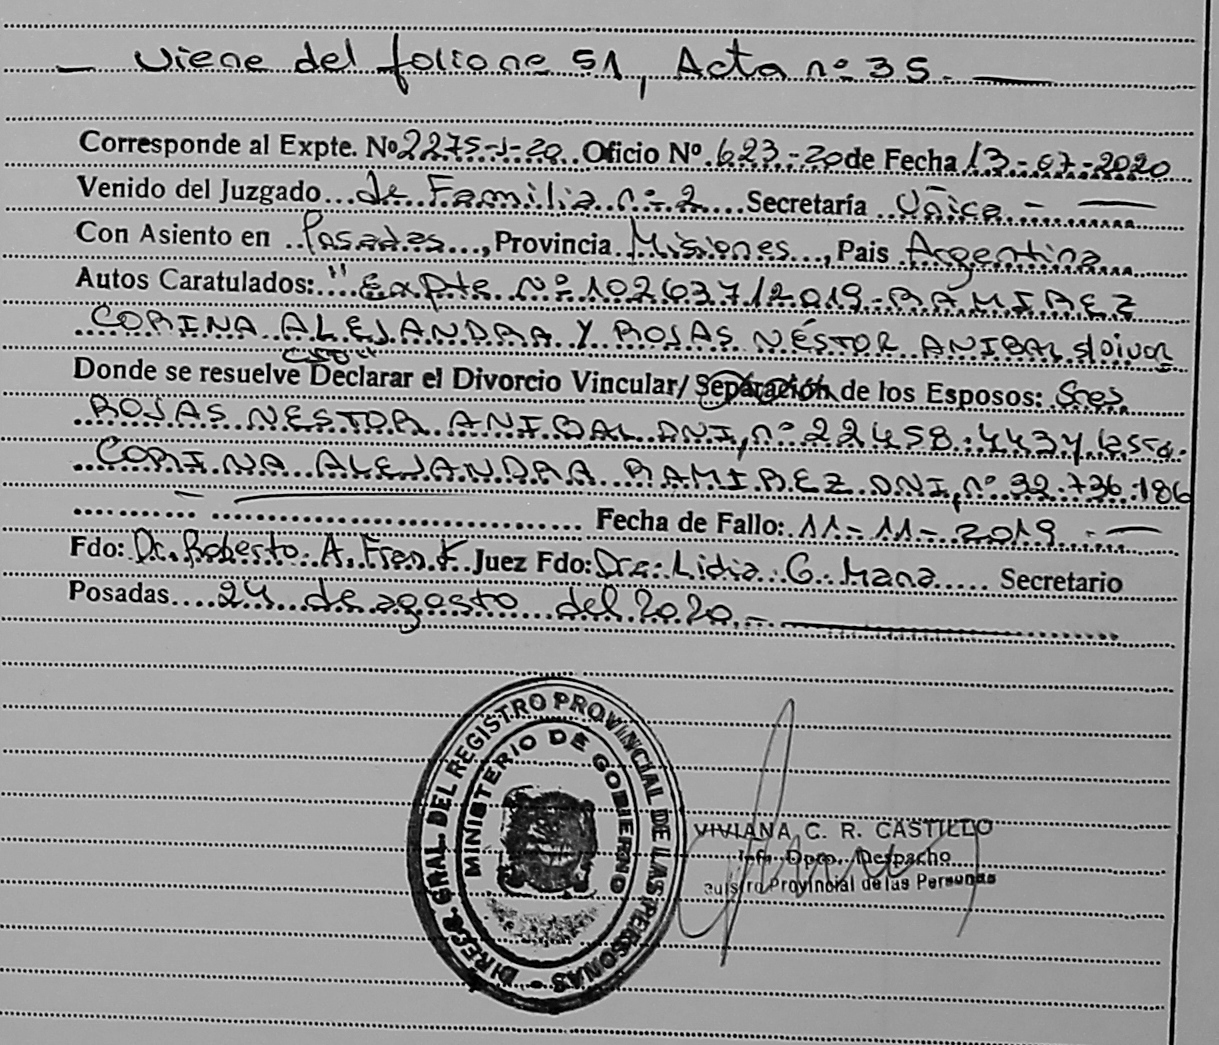 — Viene del folio nº 51, Acta nº 35. —
Corresponde al Expte. Nº 2275-J-20 Oficio Nº 623-20 de Fecha 13-07-2020
Venido del Juzgado de Familia nº 2 Secretaría Única.-
Con Asiento en Posadas, Provincia Misiones, Pais Argentina
Autos Caratulados: "Expte Nº 102637/2019-RAMIREZ
CORINA ALEJANDRA Y ROJAS NÉSTOR ANIBAL s/Divor
cio"
Donde se resuelve Declarar el Divorcio Vincular/ Separación de los Esposos: Sres
ROJAS NESTOR ANIBAL DNI, nº 22.458.443 y la Sra.
CORINA ALEJANDRA RAMIREZ DNI, nº 32.736.186
Fecha de Fallo: 11-11-2019.-
Fdo: Dr. Roberto A. Frenk Juez Fdo: Dra. Lidia G. Secretario
Posadas 24 de agosto del 2020.-
DIREC. GRAL. DEL REGISTRO PROVINCIAL DE LAS PERSONAS
MINISTERIO DE GOBIERNO
VIVIANA C. R. CASTILLO
Dpto. Despacho
Provincial de las Personas